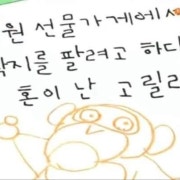 원 선물가게에서
팔려고 하다
혼이 난 고릴라